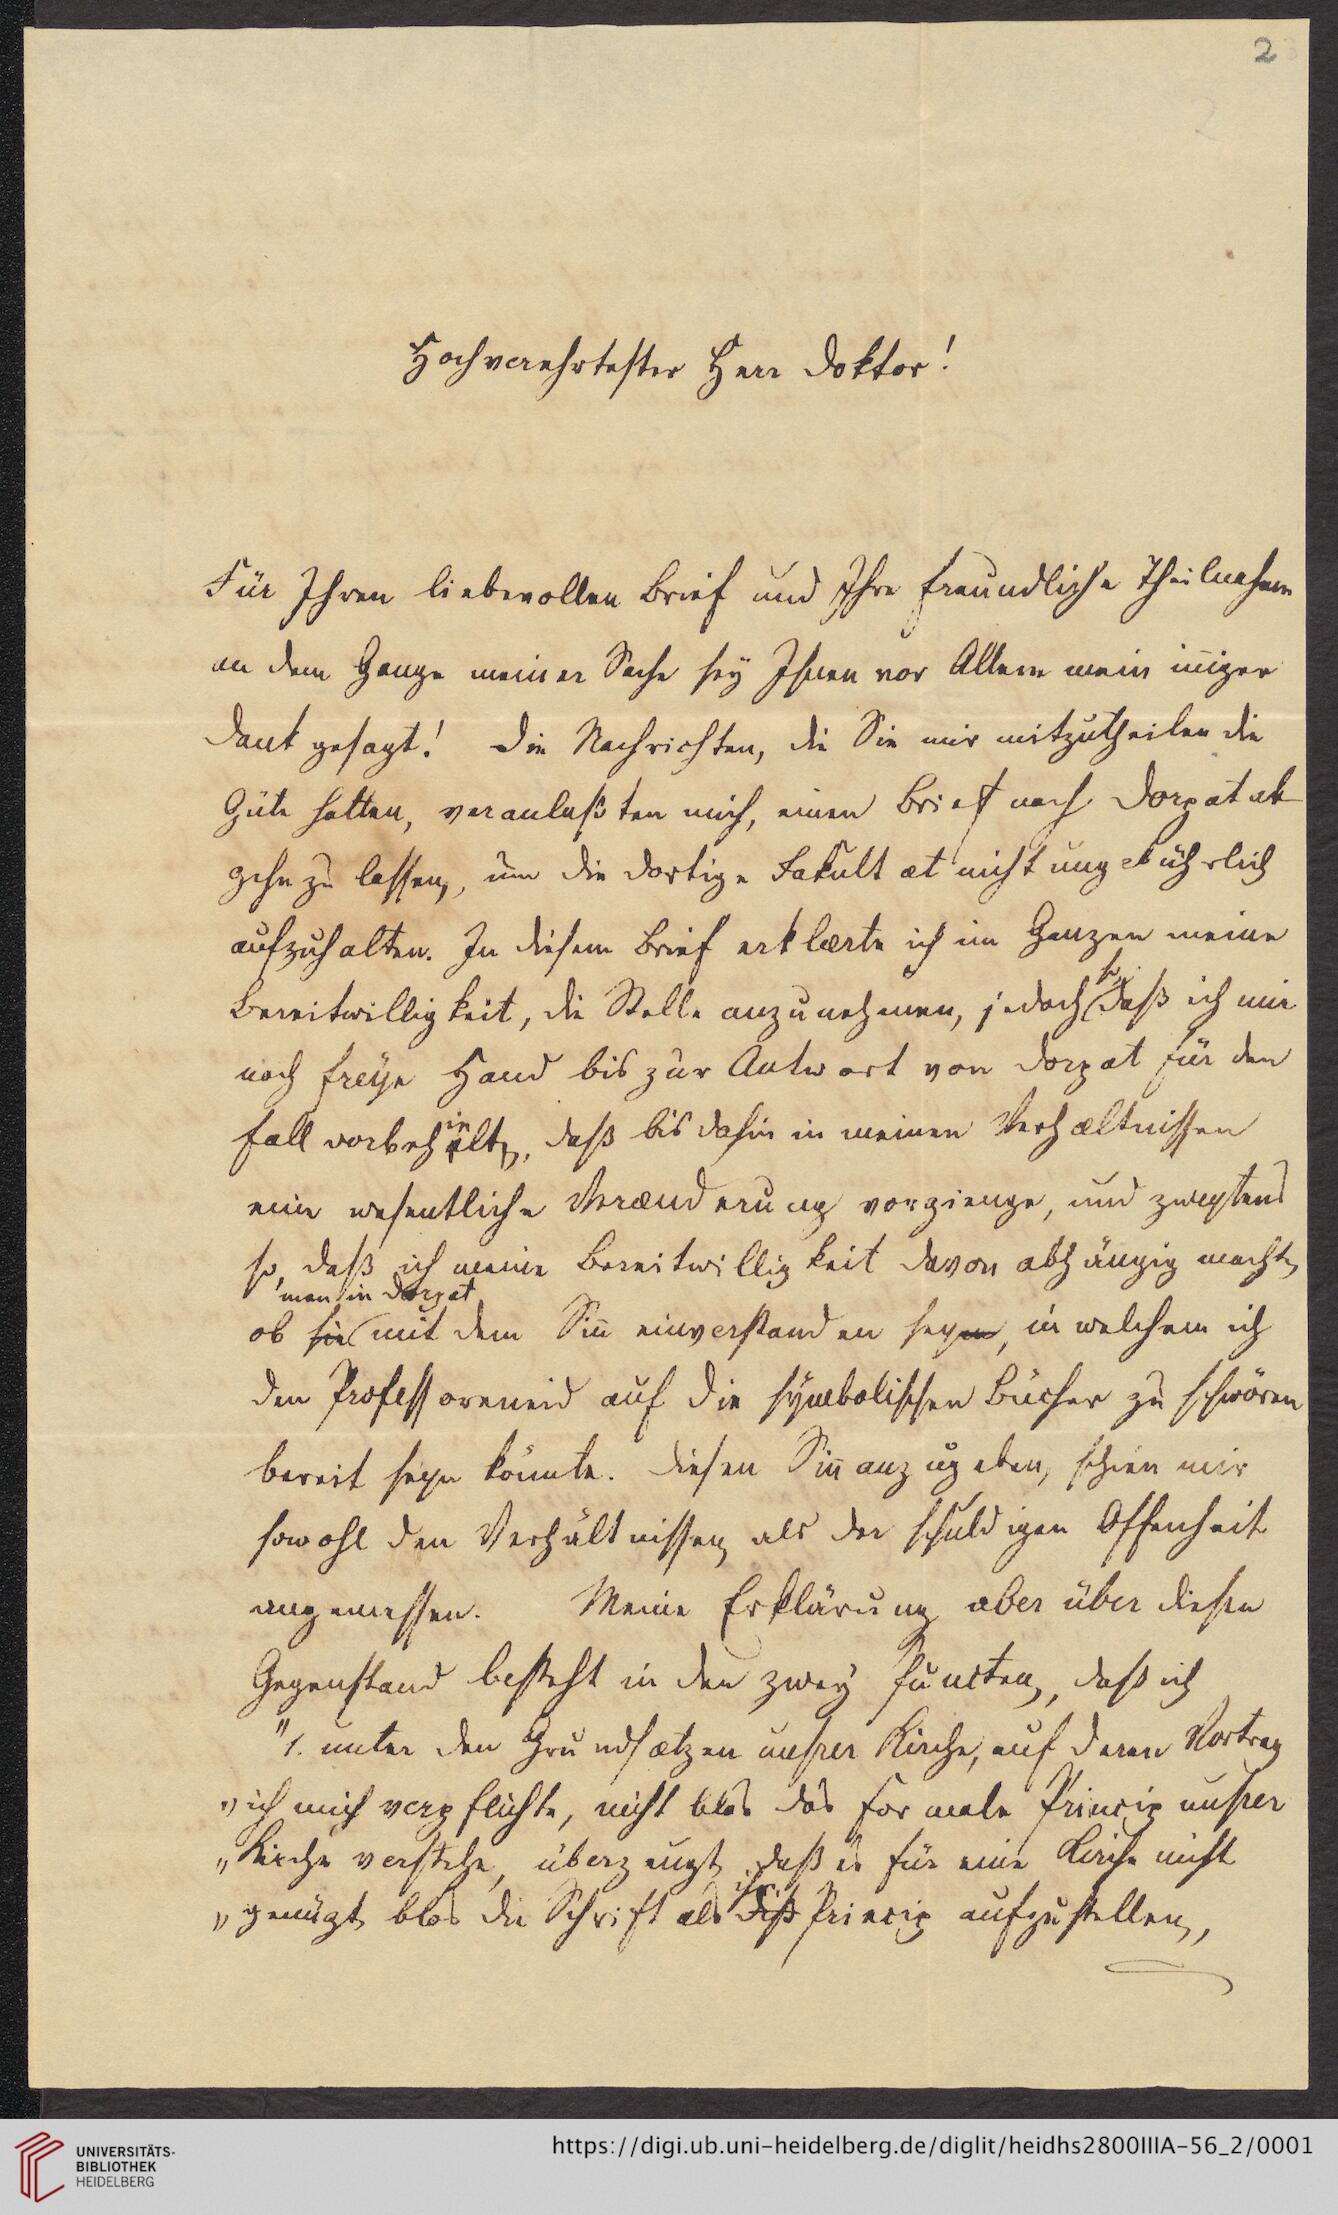 2
Hochverehrtester Herr Doktor!
Für Ihren liebevollen Brief und Ihre freundliche Theilnahme
an dem Gange meiner Sache sey Ihnen vor Allem mein iniger
Dank gesagt! Die Nachrichten, die Sie mir mitzutheilen die
Güte hatten, veranlaßten mich, einen Brief nach Dorpat ab
gehn zu lassen, um die dortige Fakultæt nicht ungebührlich
aufzuhalten. In diesem Brief erklærte ich im Ganzen meine
Bereitwilligkeit, die Stelle anzunehmen, jedoch so, daß ich mir
noch freye Hand bis zur Antwort von Dorpat für den
Fall vorbehielt, daß bis dahin in meinen Verhæltnissen
eine wesentliche Verænderung vorgienge, und zweytens
so, daß ich meine Bereitwilligkeit davon abhängig machte,
man in Dorpat
ob sie mit dem Sin̄ einverstanden seyn, in welchem ich
den Professoreneid auf die symbolischen Bücher zu schwören
bereit seyn könnte. Diesen Sin̄ anzugeben, schien mir
sowohl den Verhältnissen als der schuldigen Offenheit
angemessen. Meine Erklärung aber über diesen
Gegenstand besteht in den zwey Puncten, daß ich
"1. unter den Grundsætzen unsrer Kirche, auf deren Vortrag
„ich mich verpflichte, nicht blos das formale Princip unsrer
„Kirche verstehe, überzeugt, daß es für eine Kirche nicht
„genügt blos die Schrift als ihr Princip aufzustellen,
UNIVERSITÄTS-
BIBLIOTHEK
HEIDELBERG
https://digi.ub.uni-heidelberg.de/diglit/heidhs2800IIIA-56_2/0001